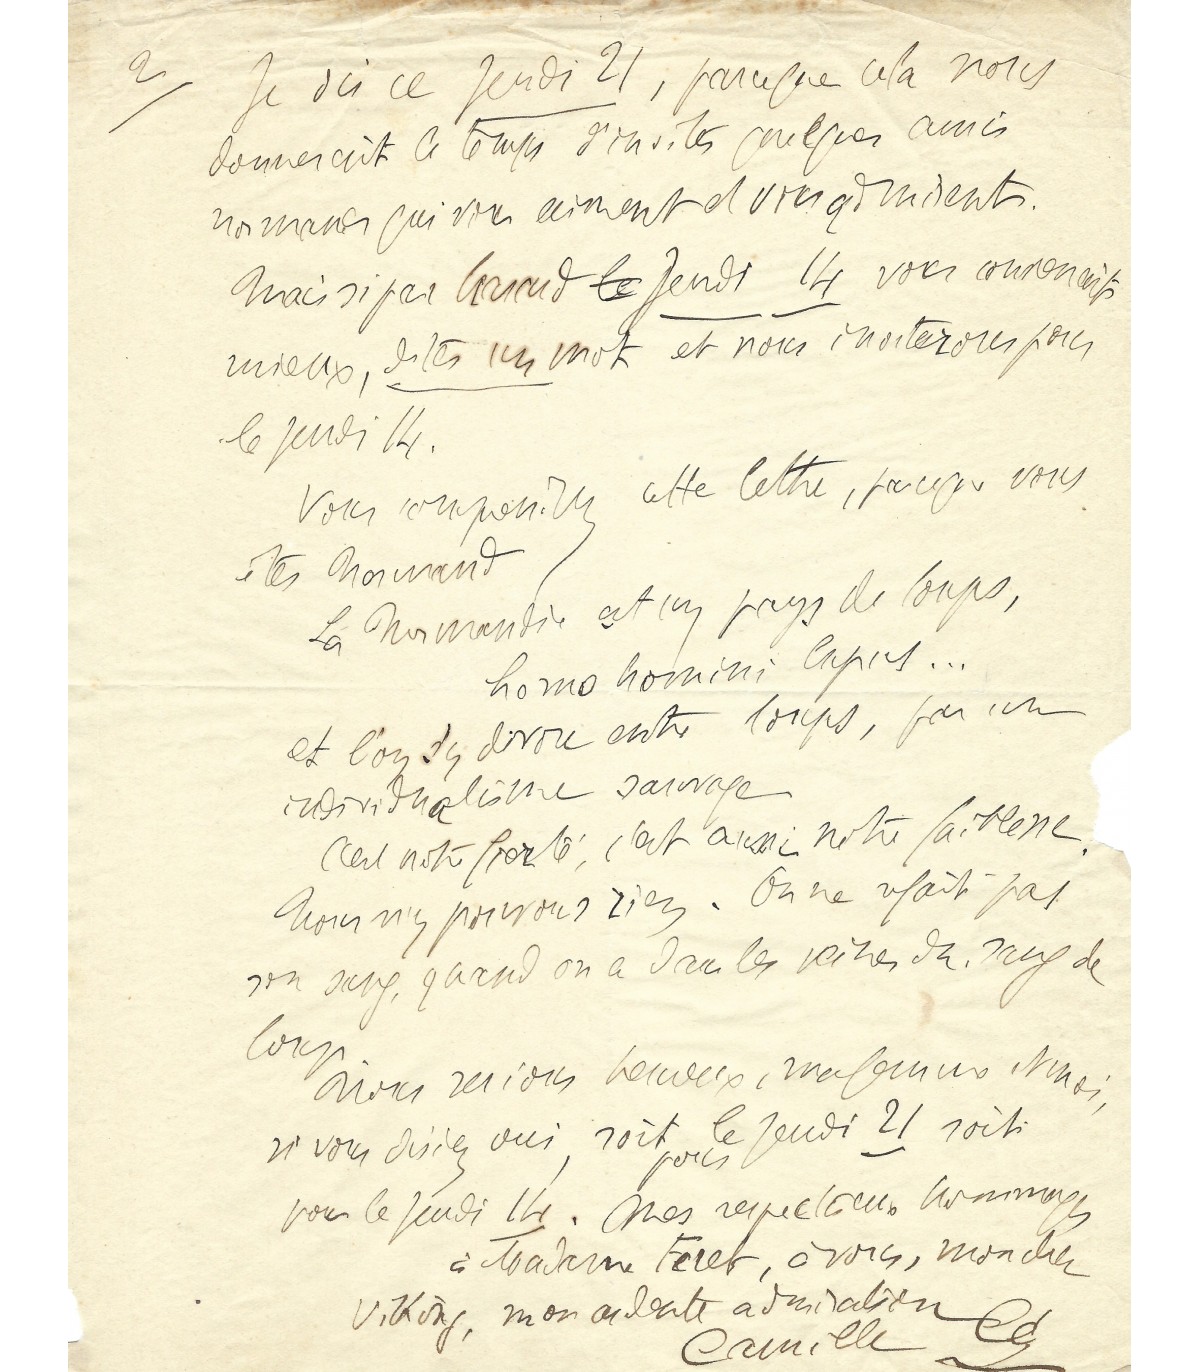 2/ Je dis ce Jeudi 21, parceque cela nous
donnerait le temps d'inviter quelques amis
normands qui vous aiment et vous admirent.
Mais si par hasard le Jeudi 14 vous convenait
mieux, dites un mot et nous inviterons pour
le jeudi 14.
Vous comprendrez cette lettre, parceque vous
êtes Normand
La Normandie est un pays de loups,
homo homini lupus...
et l'on s'y dévore entre loups, par un
individualisme sauvage
C'est notre fierté, c'est aussi notre faiblesse.
Nous n'y pouvons rien. On ne refait pas
son sang, quand on a dans les veines du sang de
loup.
Nous serions heureux, ma femme et moi,
si vous disiez oui, soit pour le Jeudi 21 soit
pour le jeudi 14. Mes respectueux hommages
à Madame Féret, à vous, mon cher
Viking, mon ardente admiration
Camille Cé